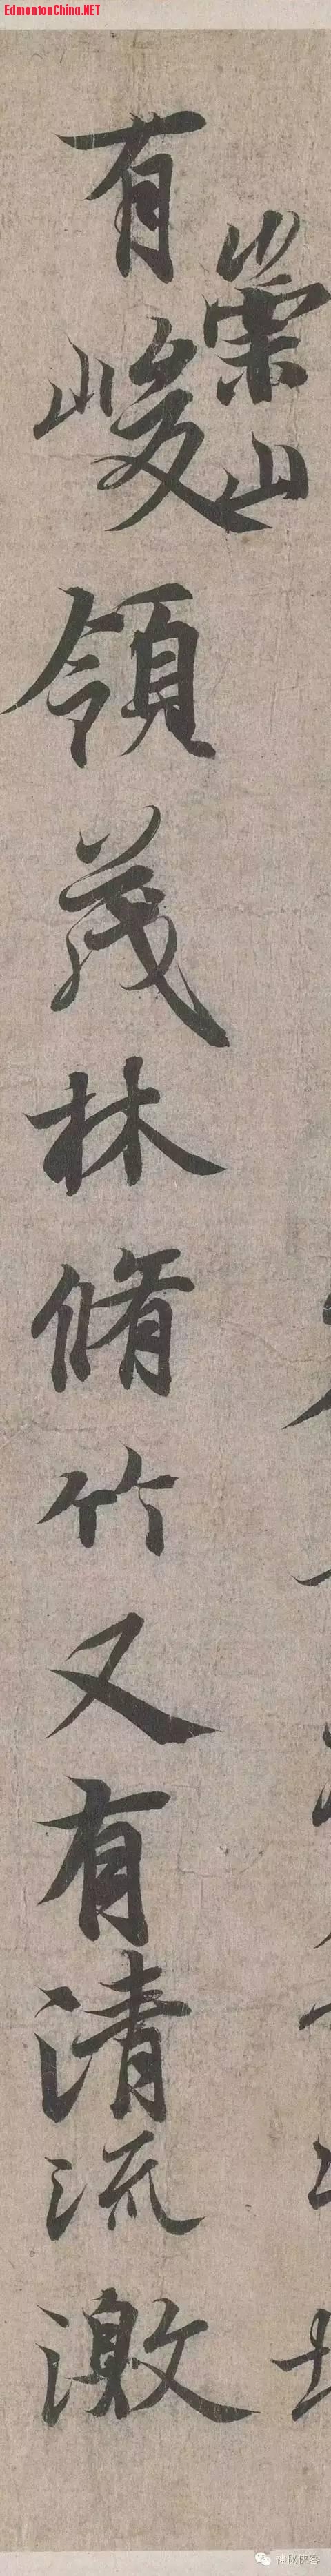 EdmontonChina.NET
崇山
有峻領茂林脩竹又有清流激
神秘侠客